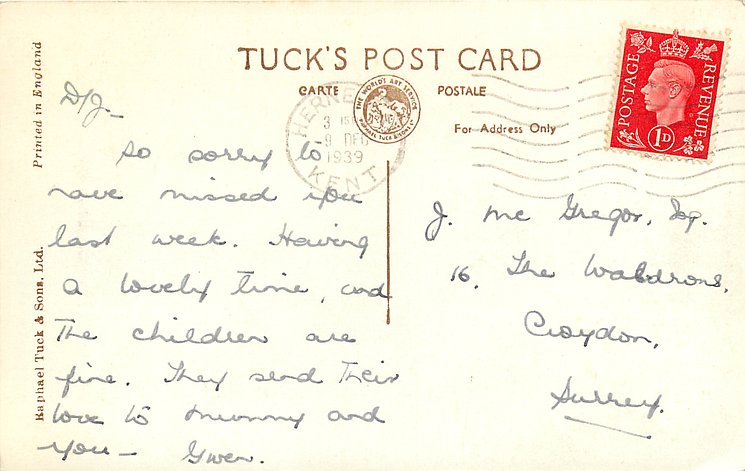 TUCK'S POST CARD
CARTE POSTALE
THE WORLD'S ART SERVICE
RAPHAEL TUCK & SONS LTD
For Address Only
POSTAGE REVENUE
1D
HERNE
3 15
9 DEC
1939
KENT
Printed in England
Raphael Tuck & Sons, Ltd.
D/J—
So sorry to
have missed you
last week. Having
a lovely time, and
the children are
fine. They send their
love to mummy and
you — Gwen.
J. Mc Gregor, Esq.
16, The Waldrons,
Croydon,
Surrey.